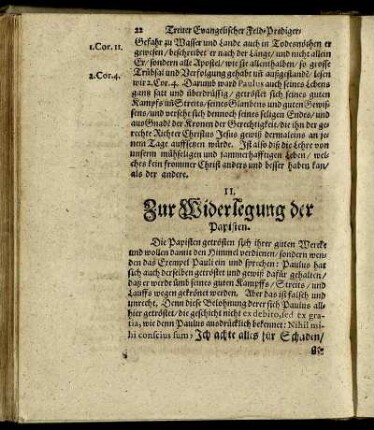 22 Trewer Evangelischer Feld-Prediger/
1.Cor.11. Gefahr zu Wasser und Lande auch in Todesnöthen er
gewesen/ beschreibet er nach der Länge/ und nicht allein
Er/ sondern alle Apostel/ wie sie allenthalben/ so grosse
Trübsal und Verfolgung gehabt uñ außgestandẽ/ lesen
2.Cor.4. wir 2.Cor. 4. Darumb ward Paulus auch seines Lebens
gantz satt und überdrüssig/ getröstet sich seines guten
Kampffs uñ Streits/ seines Glaubens und guten Gewis-
sens/ und versihe sich dennoch seines seligen Endes/ und
aus Gnadẽ der Kronen der Gerechtigkeit/ die ihn der ge-
rechte Richter Christus Jesus gewiß dermaleins an je-
nem Tage auffsetzen würde. Ist also diß die Lehre von
unserm mühseligen und jammerhafftigen Leben/ wel-
ches kein frommer Christ anders und besser haben kan/
als der andere.
II.
Zur Widerlegung der
Papisten.
Die Papisten getrösten sich ihrer guten Wercke
und wollen damit den Himmel verdienen/ sondern wen-
den das Exempel Pauli ein und sprechen: Paulus hat
sich auch derselben getröstet und gewiß dafür gehalten/
daß er werde umb seines guten Kampffs/ Streits/ und
Lauffs wegen gekrönet werden. Aber das ist falsch und
unrecht. Denn diese Belohnung derer sich Paulus all-
hier getröstet/ die geschicht nicht ex debito, sed ex gra-
tia, wie denn Paulus ausdrücklich bekennet: Nihil mi-
hi conscius sum, Ich achte alles für Schaden/